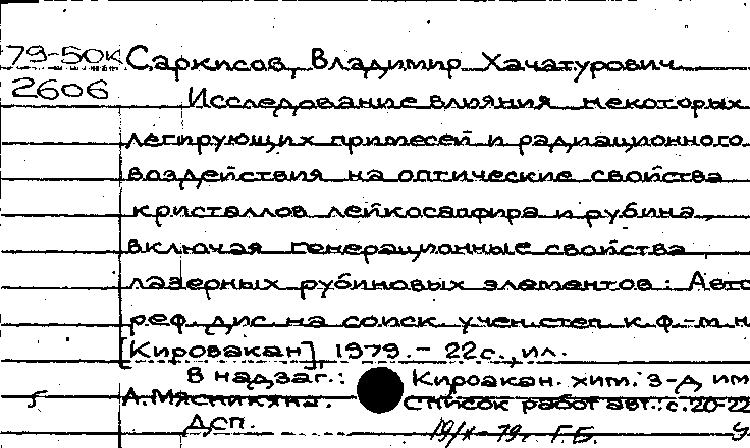 79-50к Саркисов, Владимир Хачатурович
2606 Исследование влияния некоторых
легирующих примесей и радиационного
воздействия на оптические свойства
кристаллов лейкосапфира и рубина,
включая генерационные свойства
лазерных рубиновых элементов: Авто
реф. дис. на соиск. учен. степ. к. ф.-м. н
[Кировакан], 1979. - 22 с., ил.
В надзаг.: Кировакан. хим. з-д им
5 А. Мясникяна. Список работ авт.: с. 20-22
Дсп. 19/X-79. Г.Б.